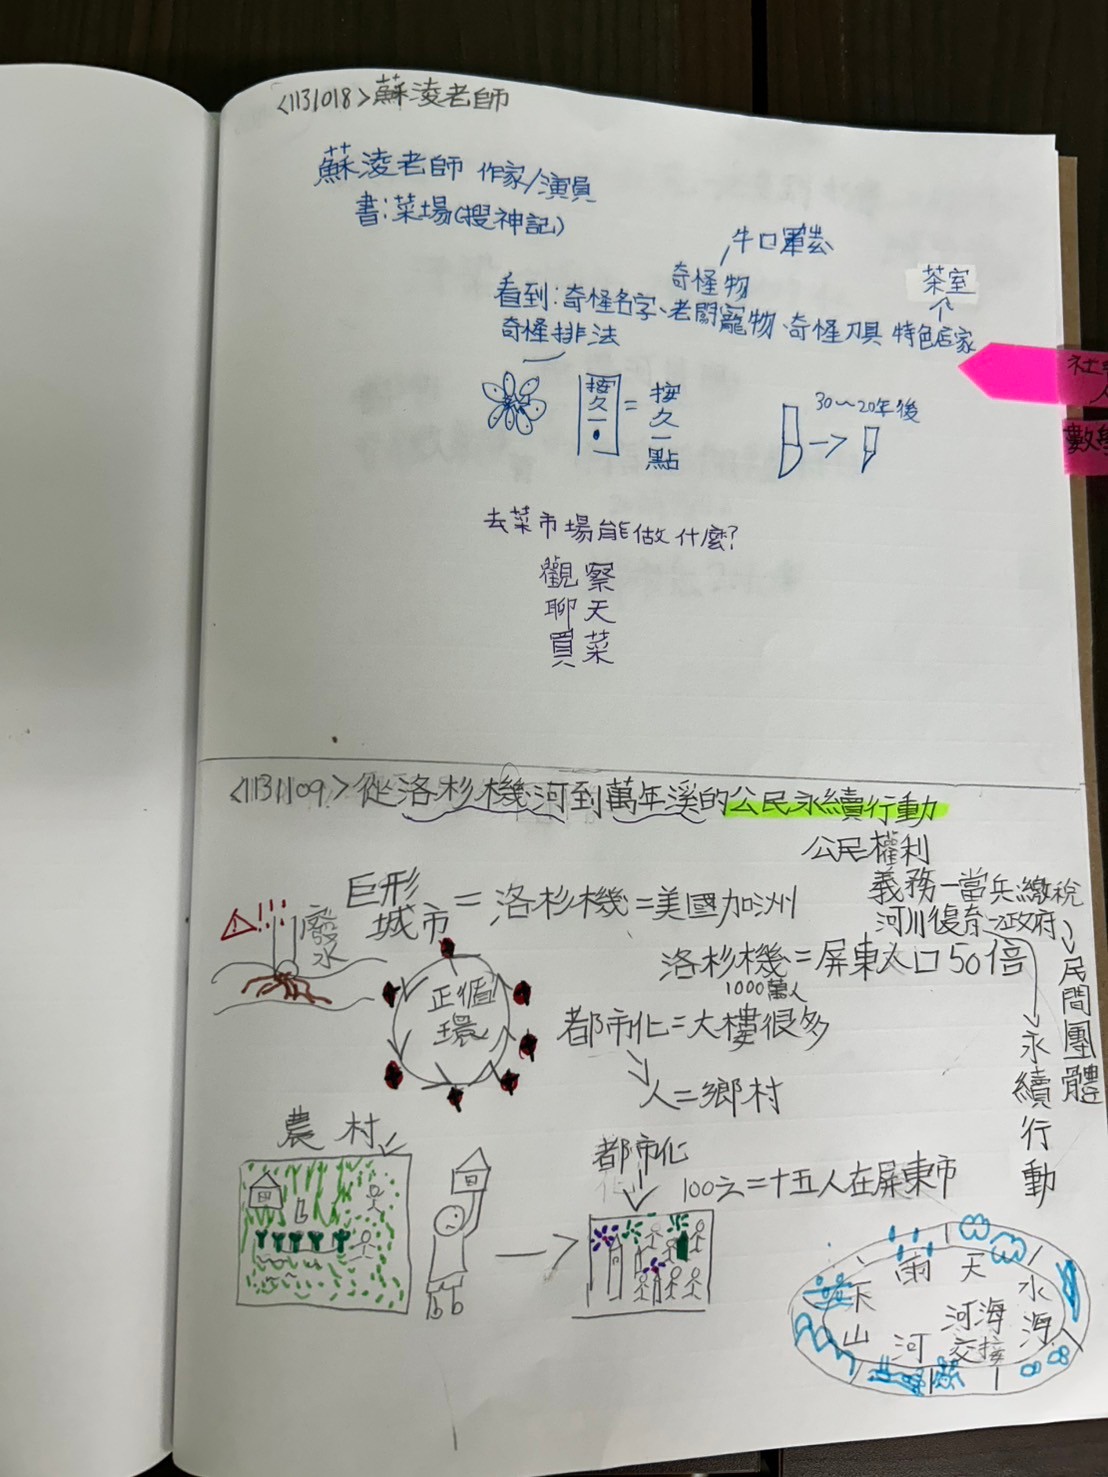 <1131018>蘇淩老師
蘇淩老師 作家/演員
書:菜場(搜神記)
牛口罩
奇怪物
茶室
看到:奇怪名字、老闆寵物、奇怪刀具 特色店家
奇怪排法
按久一•
=
按久一點
30~20年後
社
人
數學
去菜市場能做什麼?
觀察
聊天
買菜
<1131109>從洛杉機河到萬年溪的公民永續行動
公民權利
義務一當兵繳稅
河川復育→政府
民間團體
永續行動
巨形城市=洛杉機=美國加洲
廢水
洛杉機=屏東人口50倍
1000萬人
正循環
都市化=大樓很多
人=鄉村
農村
都市化
化
100元=十五人在屏東市
雨 天
水
海
河海交接
河
山